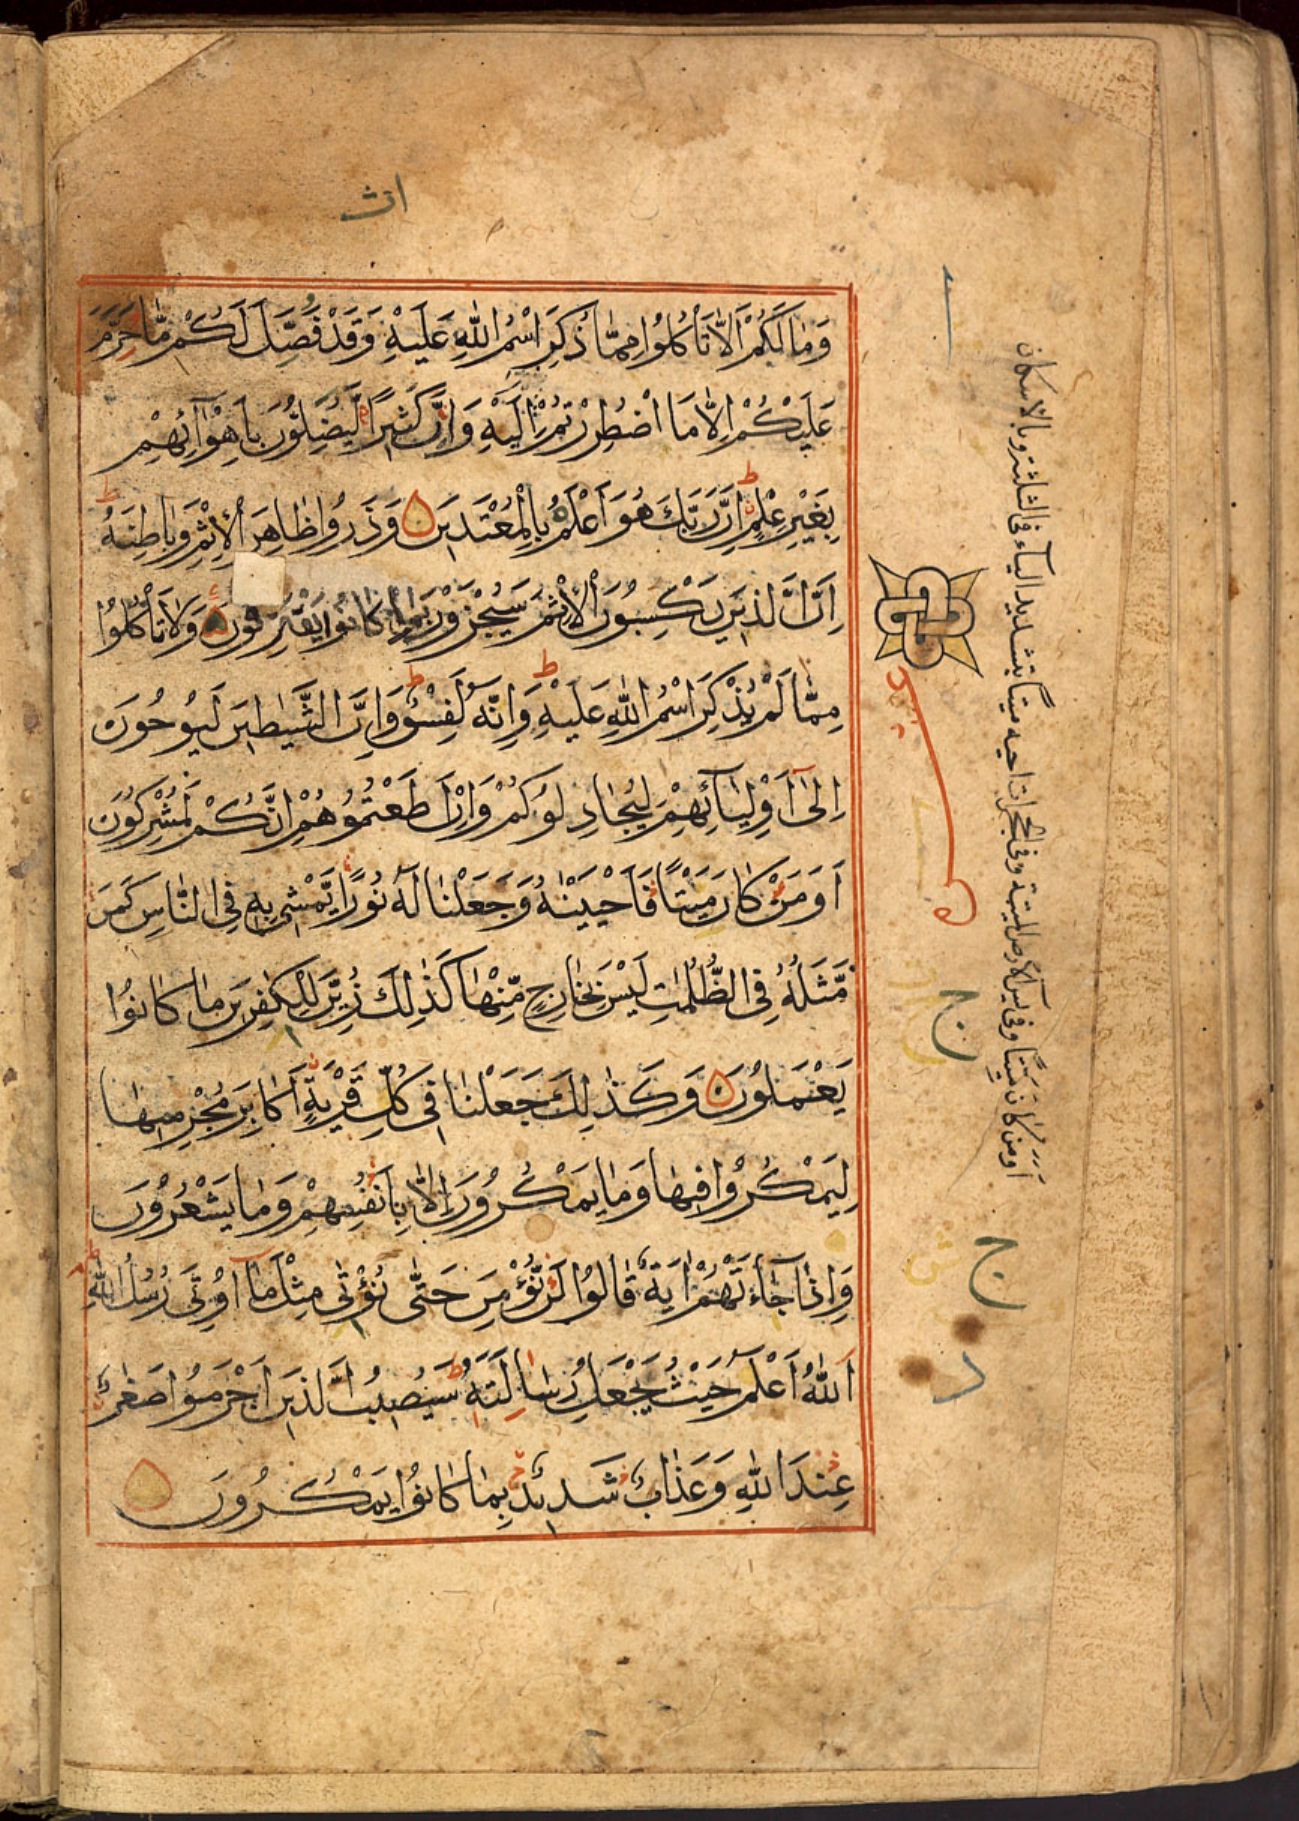 اث
وَمَا لَكُمْ اَلَّا تَاْكُلُوْا مِمَّا ذُكِرَ اسْمُ اللّٰهِ عَلَيْهِ وَقَدْ فَصَّلَ لَكُمْ مَّا حَرَّمَ
عَلَيْكُمْ اِلَّا مَا اضْطُرِرْتُمْ اِلَيْهِ وَاِنَّ كَثِيْرًا لَّيُضِلُّوْنَ بِاَهْوَآئِهِمْ
بِغَيْرِ عِلْمٍ اِنَّ رَبَّكَ هُوَ اَعْلَمُ بِالْمُعْتَدِيْنَ وَذَرُوْا ظَاهِرَ الْاِثْمِ وَبَاطِنَهٗ
اِنَّ الَّذِيْنَ يَكْسِبُوْنَ الْاِثْمَ سَيُجْزَوْنَ بِمَا كَانُوْا يَقْتَرِفُوْنَ وَلَا تَاْكُلُوْا
مِمَّا لَمْ يُذْكَرِ اسْمُ اللّٰهِ عَلَيْهِ وَاِنَّهٗ لَفِسْقٌ وَاِنَّ الشَّيٰطِيْنَ لَيُوْحُوْنَ
اِلٰٓى اَوْلِيَآئِهِمْ لِيُجَادِلُوْكُمْ وَاِنْ اَطَعْتُمُوْهُمْ اِنَّكُمْ لَمُشْرِكُوْنَ
اَوَمَنْ كَانَ مَيْتًا فَاَحْيَيْنٰهُ وَجَعَلْنَا لَهٗ نُوْرًا يَّمْشِىْ بِهٖ فِى النَّاسِ كَمَنْ
مَّثَلُهٗ فِى الظُّلُمٰتِ لَيْسَ بِخَارِجٍ مِّنْهَا كَذٰلِكَ زُيِّنَ لِلْكٰفِرِيْنَ مَا كَانُوْا
يَعْمَلُوْنَ وَكَذٰلِكَ جَعَلْنَا فِىْ كُلِّ قَرْيَةٍ اَكَابِرَ مُجْرِمِيْهَا
لِيَمْكُرُوْا فِيْهَا وَمَا يَمْكُرُوْنَ اِلَّا بِاَنْفُسِهِمْ وَمَا يَشْعُرُوْنَ
وَاِذَا جَآءَتْهُمْ اٰيَةٌ قَالُوْا لَنْ نُّؤْمِنَ حَتّٰى نُؤْتٰى مِثْلَ مَآ اُوْتِىَ رُسُلُ اللّٰهِ
اَللّٰهُ اَعْلَمُ حَيْثُ يَجْعَلُ رِسَالَتَهٗ سَيُصِيْبُ الَّذِيْنَ اَجْرَمُوْا صَغَارٌ
عِنْدَ اللّٰهِ وَعَذَابٌ شَدِيْدٌ بِمَا كَانُوْا يَمْكُرُوْنَ
اومن كان ميتا وفى يس الارض الميتة وفى الحجرات اخيه ميتا بتشديد الياء فى الثلثة وبالاسكان
ج
ج